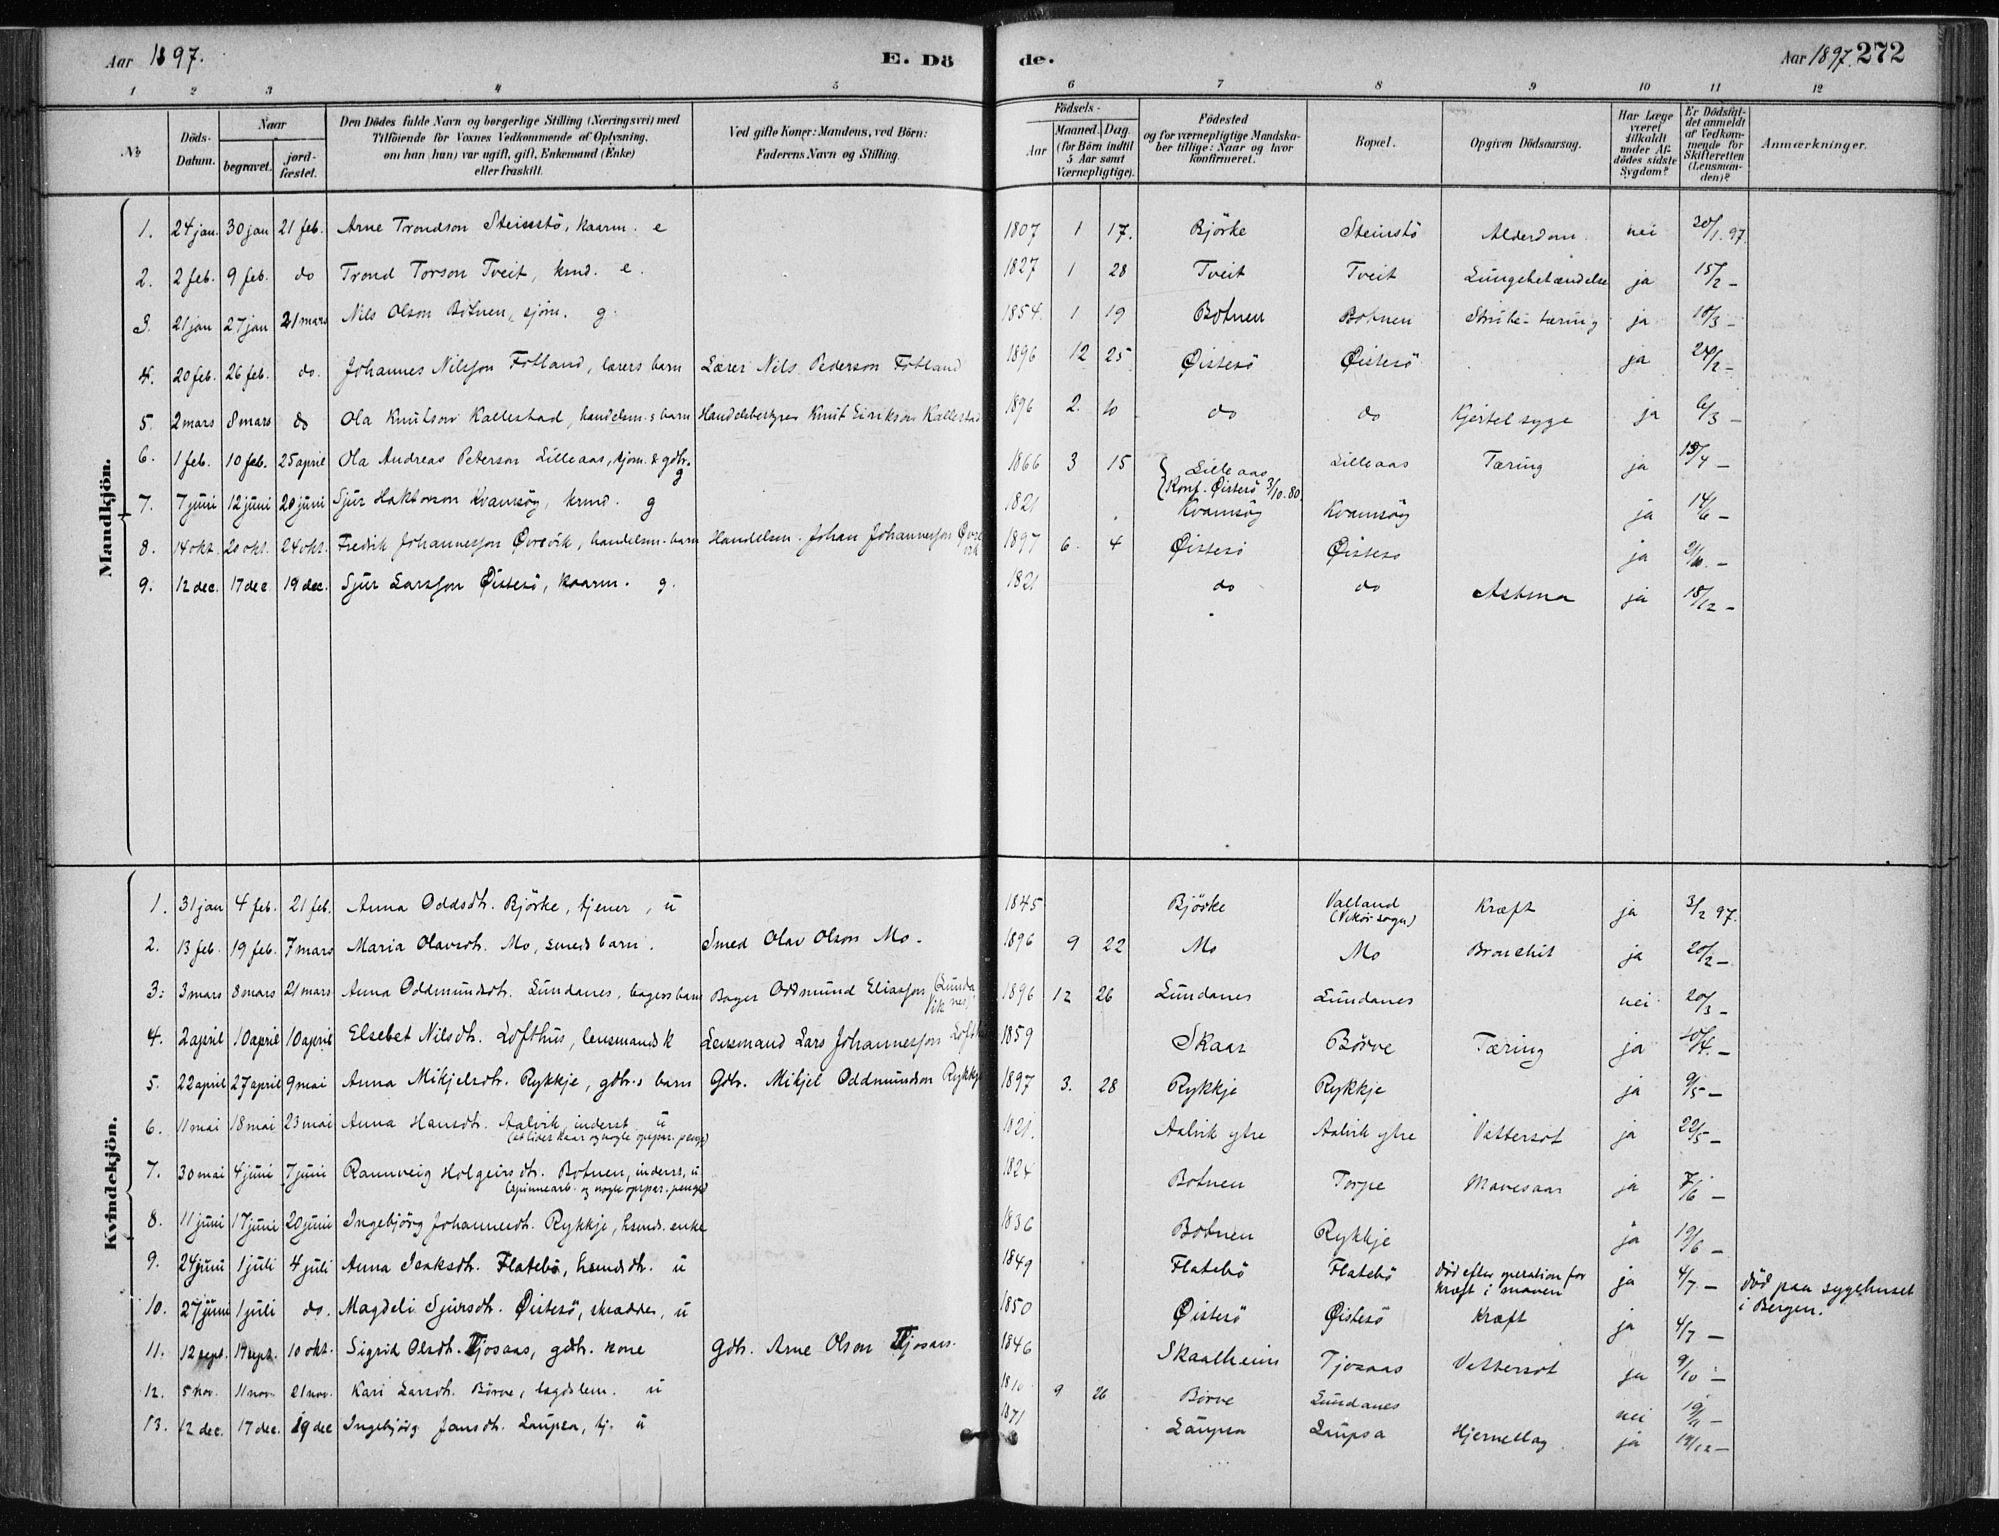 Aar 1897. E. Dö de. Aar 1897. 272
1 2 3 4 5 6 7 8 9 10 11 12
No. Döds-Datum. Naar begravet. jord-fæstet. Den Dödes fulde Navn og borgerlige Stilling (Næringsvei) med Tilföiende for Voxnes Vedkommende af Oplysning, om han (hun) var ugift, gift, Enkemand (Enke) eller fraskilt. Ved gifte Koner: Mandens, ved Börn: Faderens Navn og Stilling. Födsels- Aar Maaned. Dag. (for Börn indtil 5 Aar samt Værnepligtige). Födested og for værnepligtige Mandskaber tillige: Naar og hvor konfirmeret. Bopæl. Opgiven Dödsaarsag. Har Læge været tilkaldt under Afdödes sidste Sygdom? Er Dödsfaldet anmeldt af Vedkommende for Skifteretten (Lensmanden)? Anmærkninger.
Mandkjön.
1. 24 jan. 30 jan 21 feb. Arne Trondson Steinstö, kaarm. e 1807 1 17. Björke Steinstö Alderdom nei 30/1 97.
2. 2 feb. 9 feb. do Trond Torson Tveit, krmd. e. 1827 1 28 Tveit Tveit Lungebetændelse ja 15/2 –
3. 21 jan 27 jan 21 mars Nils Olson Botnen, sjöm. g. 1854. 1 19 Botnen Botnen Strube-tæring ja 18/3 –
4. 20 feb. 26 feb. do. Johannes Nilsson Fotland, lærers barn Lærer Nils Pederson Fotland 1896 12 25 Øistesö Øistesö ja 24/2 –
5. 2 mars 8 mars do Ola Knutson Kallestad, handelsm.s barn Handelsbestyrer Knut Eirikson Kallestad 1896 2. 10 do do Kjertelsyge ja 6/3 –
6. 1 feb. 10 feb. 25 april Ola Andreas Peterson Lilleaas, sjöm. & gdbr. g 1866 3 15 Lilleaas Konf. Øistesö 3/10.80. Lilleaas Tæring ja 18/4 –
7. 7 juni 12 juni 20 juni Sjur Haktorson Kvamsög, krmd. g 1821 Kvamsög Kvamsög ja 14/6 –
8. 14 okt. 20 okt. 24 okt. Fredrik Johannesson Øvrevik, handelsm. barn Handelsm. Johan Johannesson Øvrevik 1897 6. 4 Øistesö Øistesö ja 21/10. –
9. 12 dec. 17 dec 19 dec. Sjur Larsson Øistesö, kaarm. g. 1821 do do Astma ja 18/12 –
Kvindekjön.
1. 31 jan 4 feb. 21 feb. Anna Oddsdtr. Björke, tjener, u 1845 Björke Valland (Vikör sogn) Kræft ja 3/2 97.
2. 13 feb. 19 feb. 7 mars Maria Olavsdtr. Mo, smeds barn. Smed Olav Olson Mo. 1896 9 22 Mo Mo Bronchit ja 20/2 –
3. 3 mars 8 mars 21 mars Anna Oddmundsdtr. Lundanes, bagers barn Bager Oddmund Eliasson Vik (Lundanes) 1896 12 26 Lundanes Lundanes nei 20/3 –
4. 2 april 10 april 10 april Elsebet Nilsdtr. Lofthus, lensmands k Lensmand Lars Johannesson Lofthus 1859 Skaar Börve Tæring ja 10/4. –
5. 22 april 27 april 9 mai Anna Mikjelsdtr. Rykkje, gdbr.s barn Gdbr. Mikjel Oddmundson Rykkje 1897 3. 28 Rykkje Rykkje ja 9/5 –
6. 11 mai 18 mai 23 mai Anna Hansdtr. Aalvik, inderst u (et lidet kaar og nogle oppar. penge) 1821. Aalvik ytre Aalvik ytre Vattersot ja 22/5 –
7. 30 mai 4 juni 7 juni Rannveig Holgeirsdtr. Botnen, inderst, u (spinnearb. og nogle oppar. penge) 1824 Botnen Torpe Mavesaar ja 7/6 –
8. 11 juni 17 juni 20 juni Ingebjörg Johannesdtr. Rykkje, husmds. enke 1836 Botnen Rykkje ja 19/6 –
9. 24 juni 1 juli 4 juli Anna Isaksdtr. Flatebö, husmdsdtr. u 1849 Flatebö Flatebö Död efter operation for kræft i maven ja 4/7 – död paa sygehuset i Bergen.
10. 27 juni 1 juli do. Magdeli Sjursdtr. Øistesö, skrædder, u 1850 Øistesö Øistesö Kræft ja 4/7 –
11. 12 sept. 19 sept. 10 okt. Sigrid Olsdtr. Tjosaas, gdbr. kone Gdbr. Arne Olson Tjosaas. 1846 Skaalheim Tjosaas Vattersot ja 9/10 –
12. 5 nov. 11 nov. 21 nov. Kari Larsdtr. Börve, lægdslem. u 1810 9 26 Börve Lundanes nei 19/11 –
13. 12 dec. 17 dec. 19 dec Ingebjörg Jansdtr. Laupsa, tj. u 1871 Laupsa Laupsa Hjerneslag ja 19/12 –